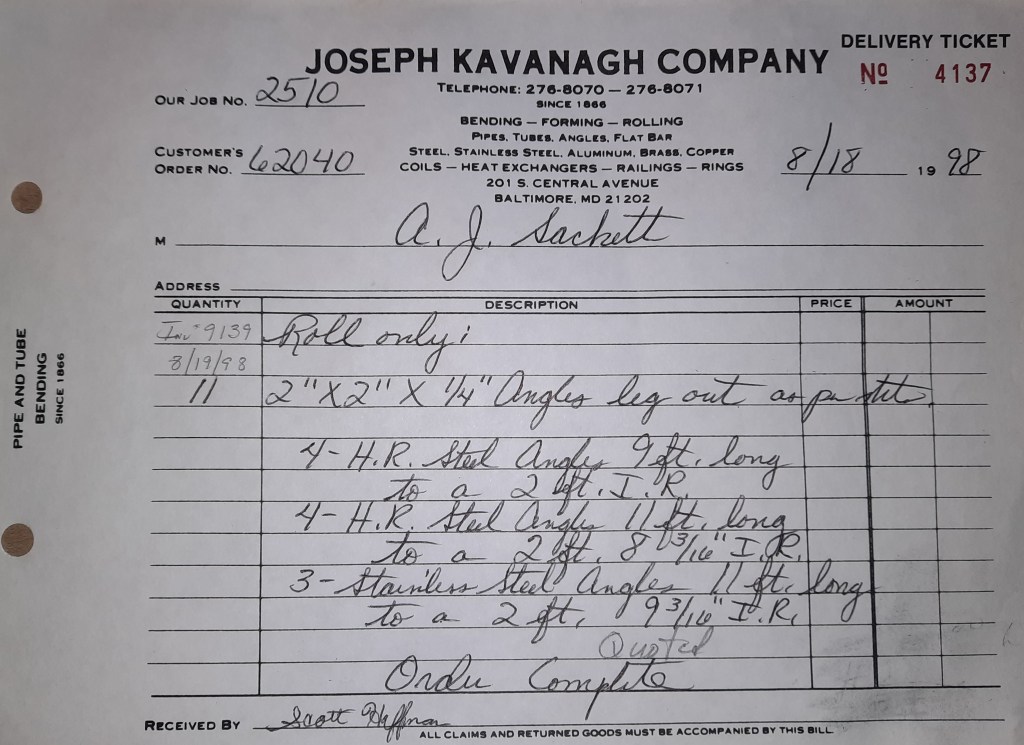 DELIVERY TICKET
JOSEPH KAVANAGH COMPANY
Nº 4137
OUR JOB NO. 2510
TELEPHONE: 276-8070 — 276-8071
SINCE 1866
BENDING — FORMING — ROLLING
PIPES, TUBES, ANGLES, FLAT BAR
CUSTOMER'S ORDER NO. 62040
STEEL, STAINLESS STEEL, ALUMINUM, BRASS, COPPER
COILS — HEAT EXCHANGERS — RAILINGS — RINGS
8/18 1998
201 S. CENTRAL AVENUE
BALTIMORE, MD 21202
M A. J. Sackett
ADDRESS
QUANTITY DESCRIPTION PRICE AMOUNT
Inv# 9139 Roll only:
8/19/98
11 2" X 2" X 1/4" Angles leg out as per
4 - H.R. Steel Angles 9 ft. long
to a 2 ft. I.R.
4 - H.R. Steel Angles 11 ft. long
to a 2 ft. 8 3/16" I.R.
3 - Stainless Steel Angles 11 ft. long
to a 2 ft. 9 3/16" I.R.
Quoted
Order Complete
RECEIVED BY Scott Hoffman
ALL CLAIMS AND RETURNED GOODS MUST BE ACCOMPANIED BY THIS BILL
PIPE AND TUBE
BENDING
SINCE 1866